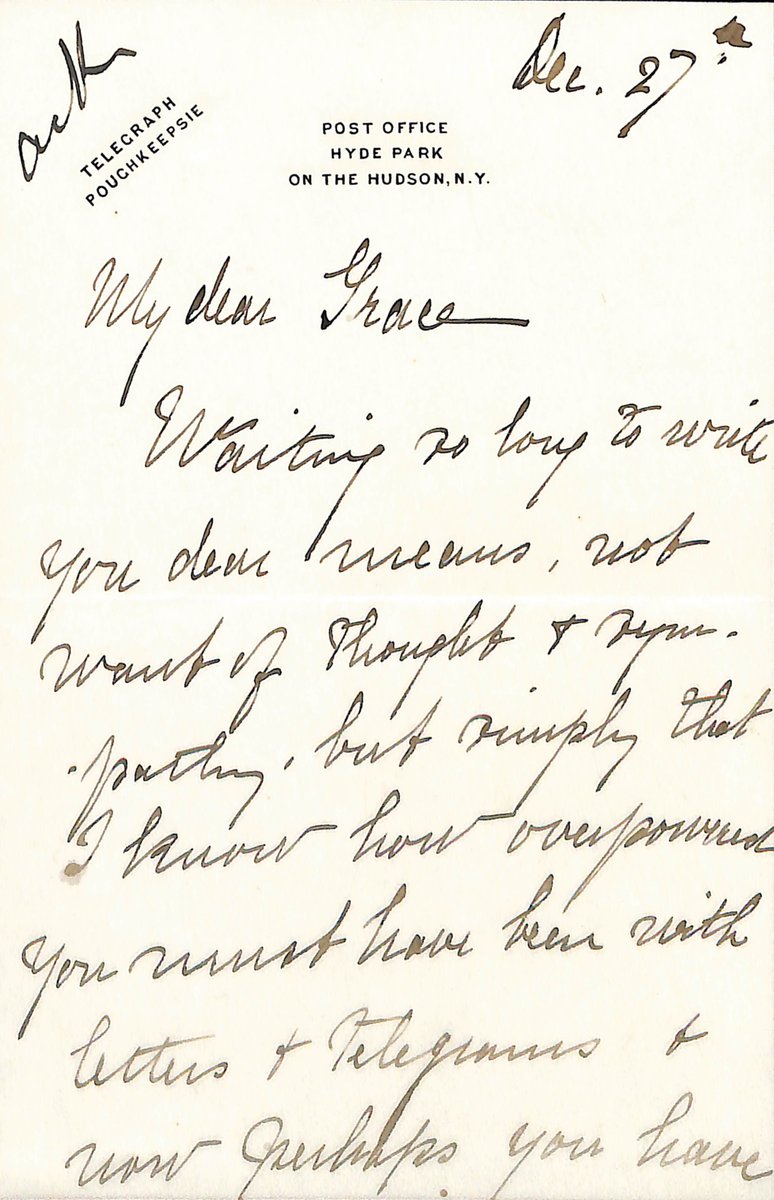 ack
TELEGRAPH
POUGHKEEPSIE
Dec. 27th
POST OFFICE
HYDE PARK
ON THE HUDSON, N.Y.
My dear Grace
Waiting so long to write
you dear means, not
want of thought & sym-
-pathy, but simply that
I know how overpowered
you must have been with
letters & telegrams &
now perhaps you have